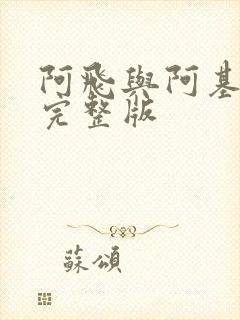 阿飛與阿基
完整版
蘇頌